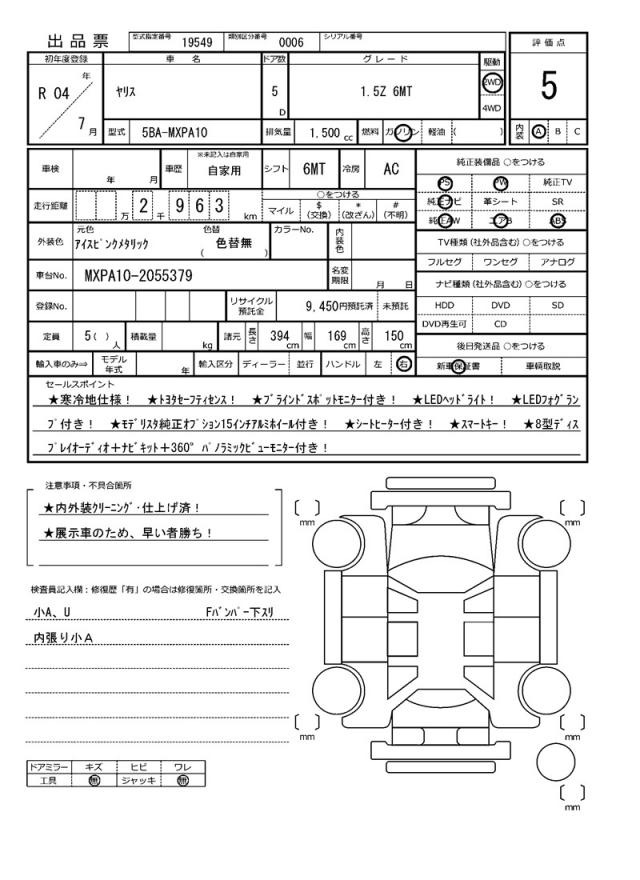 出品票 型式指定番号 19549 類別区分番号 0006 シリアル番号
評価点
初年度登録 車名 ドア数 グレード 駆動
R 04 年 7 月 ヤリス 5 D 1.5Z 6MT 2WD 4WD 5
型式 5BA-MXPA10 排気量 1.500 cc 燃料 ガソリン 軽油 ( ) 内装 A B C
車検 年 月 車歴 ※未記入は自家用 自家用 シフト 6MT 冷房 AC 純正装備品 ○をつける
PS PW 純正TV
走行距離 万 2 千 9 6 3 km ○をつける
マイル $ (交換) * (改ざん) # (不明) 純正ナビ 革シート SR
純正AW エアB ABS
外装色 元色 アイスピンクメタリック 色替 ( 色替無 ) カラーNo. 内装色 TV種類 (社外品含む) ○をつける
フルセグ ワンセグ アナログ
車台No. MXPA10-2055379 名変期限 月 日 ナビ種類 (社外品含む) ○をつける
登録No. リサイクル預託金 9,450円預託済 未預託 HDD DVD SD
DVD再生可 CD
定員 5( )人 積載量 kg 諸元 長さ 394 cm 幅 169 cm 高さ 150 cm 後日発送品 ○をつける
輸入車のみ⇒ モデル年式 年 輸入区分 ディーラー 並行 ハンドル 左 右 新車保証書 車輌取説
セールスポイント
★寒冷地仕様! ★トヨタセーフティセンス! ★ブラインドスポットモニター付き! ★LEDヘッドライト! ★LEDフォグラン
プ付き! ★モデリスタ純正オプション15インチアルミホイール付き! ★シートヒーター付き! ★スマートキー! ★8型ディス
プレイオーディオ＋ナビキット＋360° パノラミックビューモニター付き!
注意事項・不具合箇所
★内外装クリーニング・仕上げ済!
★展示車のため、早い者勝ち!
検査員記入欄：修復歴「有」の場合は修復箇所・交換箇所を記入
小A、U Fバンパー下スリ
内張り小A
ドアミラー キズ ヒビ ワレ
工具 無 ジャッキ 無
[ ] mm
[ ] mm
[ ] mm
[ ] mm
[ ] mm